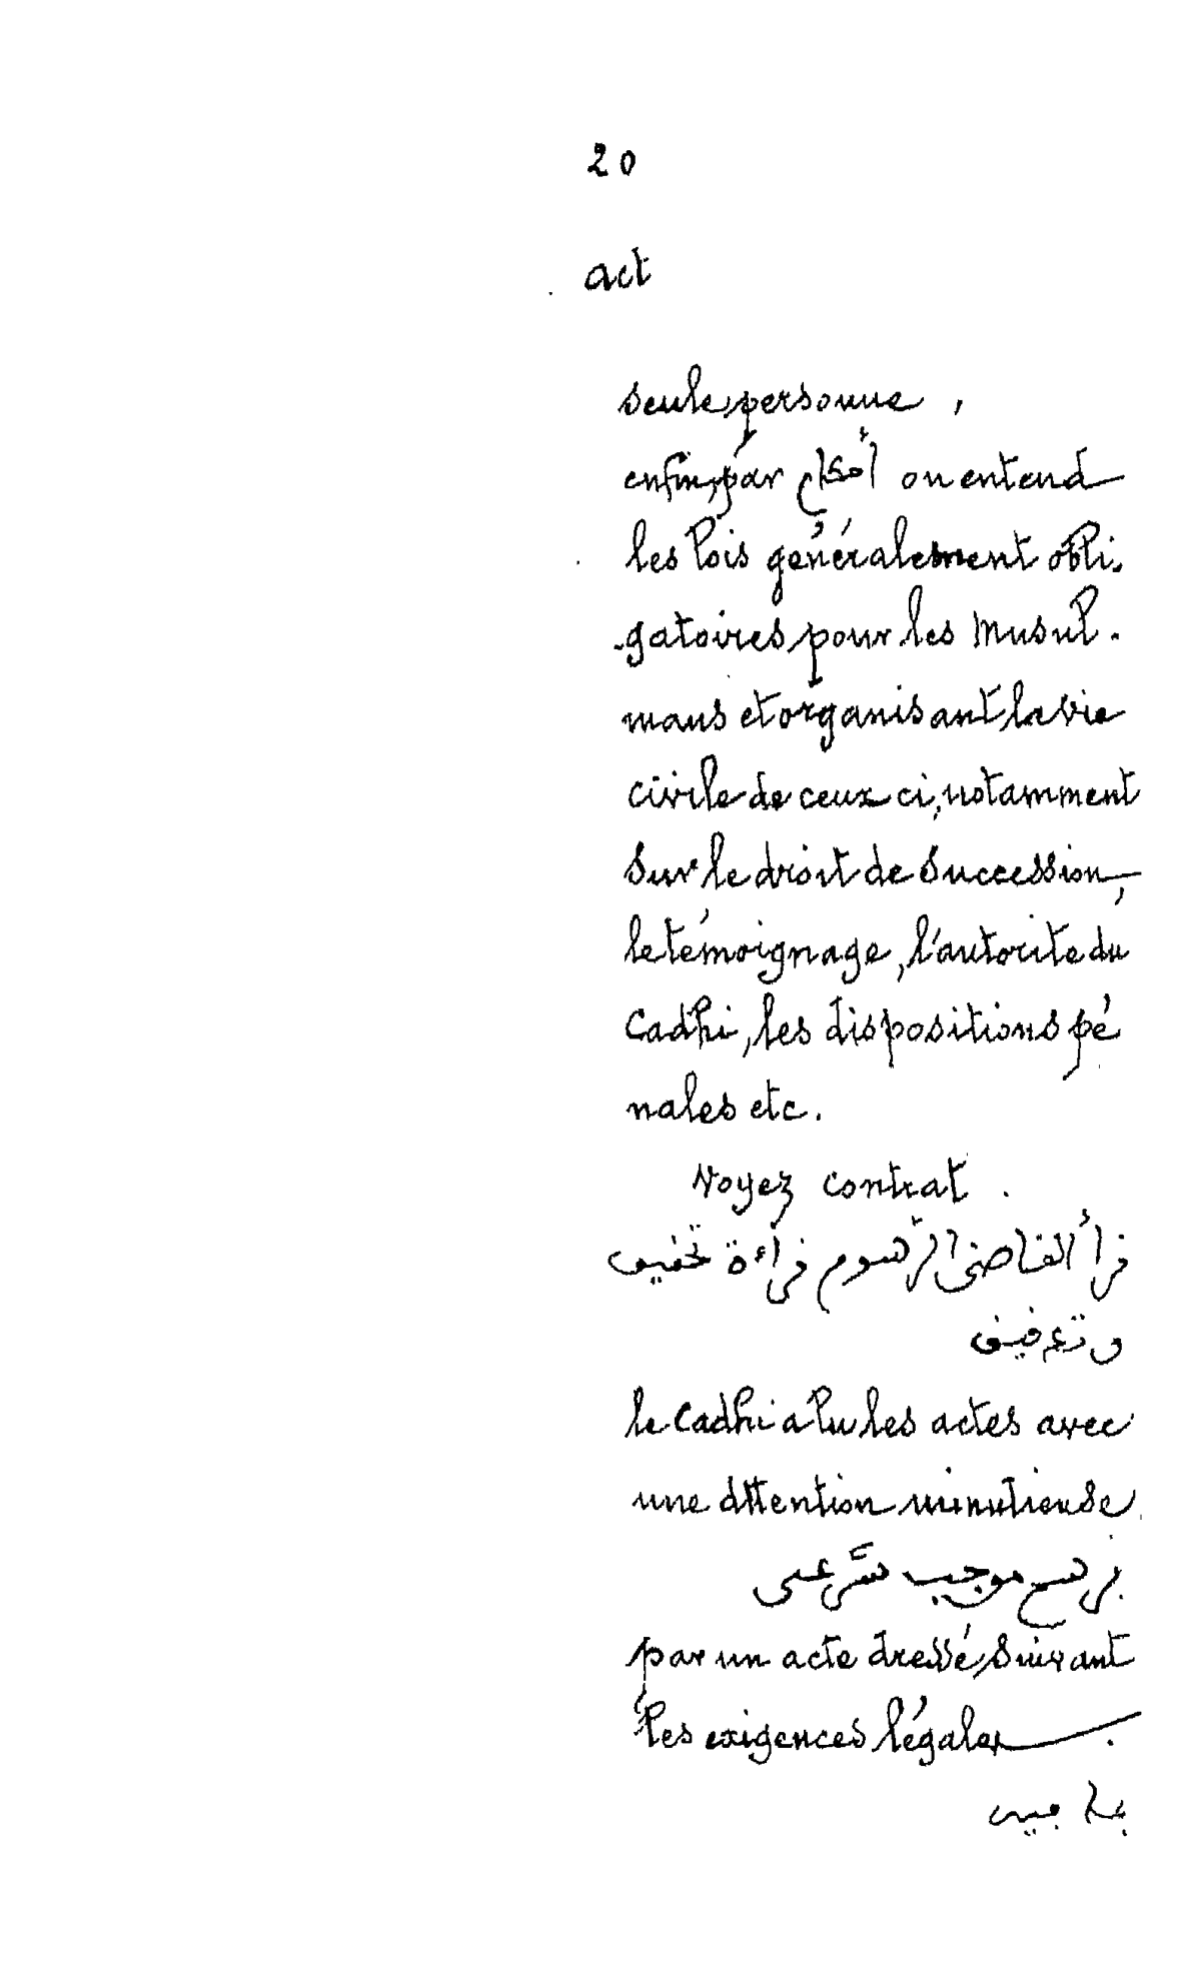 20
act
seule personne,
enfin, par أحكام on entend
les lois généralement obli-
-gatoires pour les Musul-
mans et organisant la vie
civile de ceux ci, notamment
sur le droit de succession,
le témoignage, l'autorité du
Cadhi, les dispositions pé
nales etc.
Voyez contrat.
فرأ الفاضى الرّسوم فراءة تحفيف
و تدفيف
le Cadhi a lu les actes avec
une attention minutieuse
برسم موجب شّرعى
par un acte dressé suivant
les exigences légales.